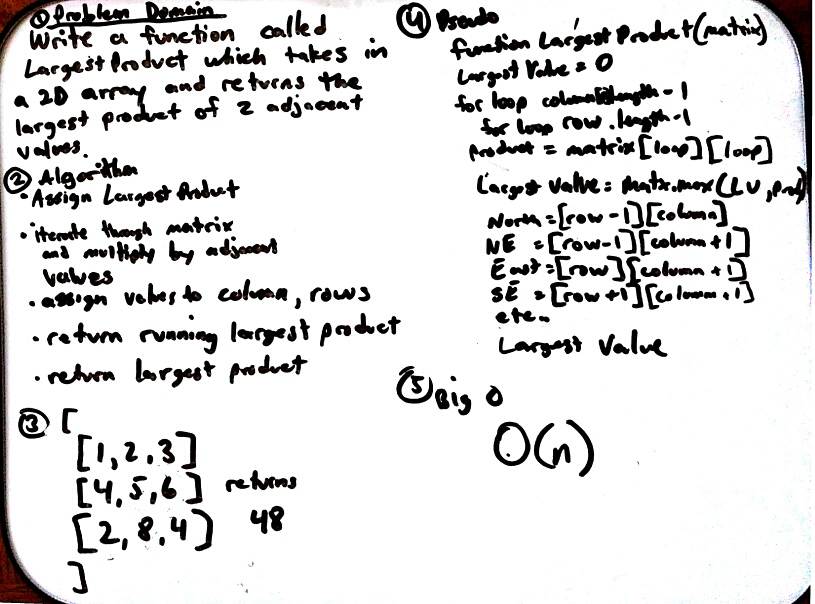 ① Problem Domain
Write a function called
Largest Product which takes in
a 2D array and returns the
largest product of 2 adjacent
values.
② Algorithm
• Assign Largest Product
• iterate through matrix
and multiply by adjacent
values
• assign values to column, rows
• return running largest product
• return largest product
③ [
[1, 2, 3]
[4, 5, 6] returns
[2, 8, 4] 48
]
④ Pseudo
function Largest Product (matrix)
Largest Value = 0
for loop column length - 1
for loop row.length - 1
product = matrix [loop] [loop]
Largest Value = (LU, Prod)
North = [row - 1] [column]
NE = [row - 1] [column + 1]
East = [row] [column + 1]
SE = [row + 1] [column + 1]
etc..
Largest Value
⑤ Big O
O(n)